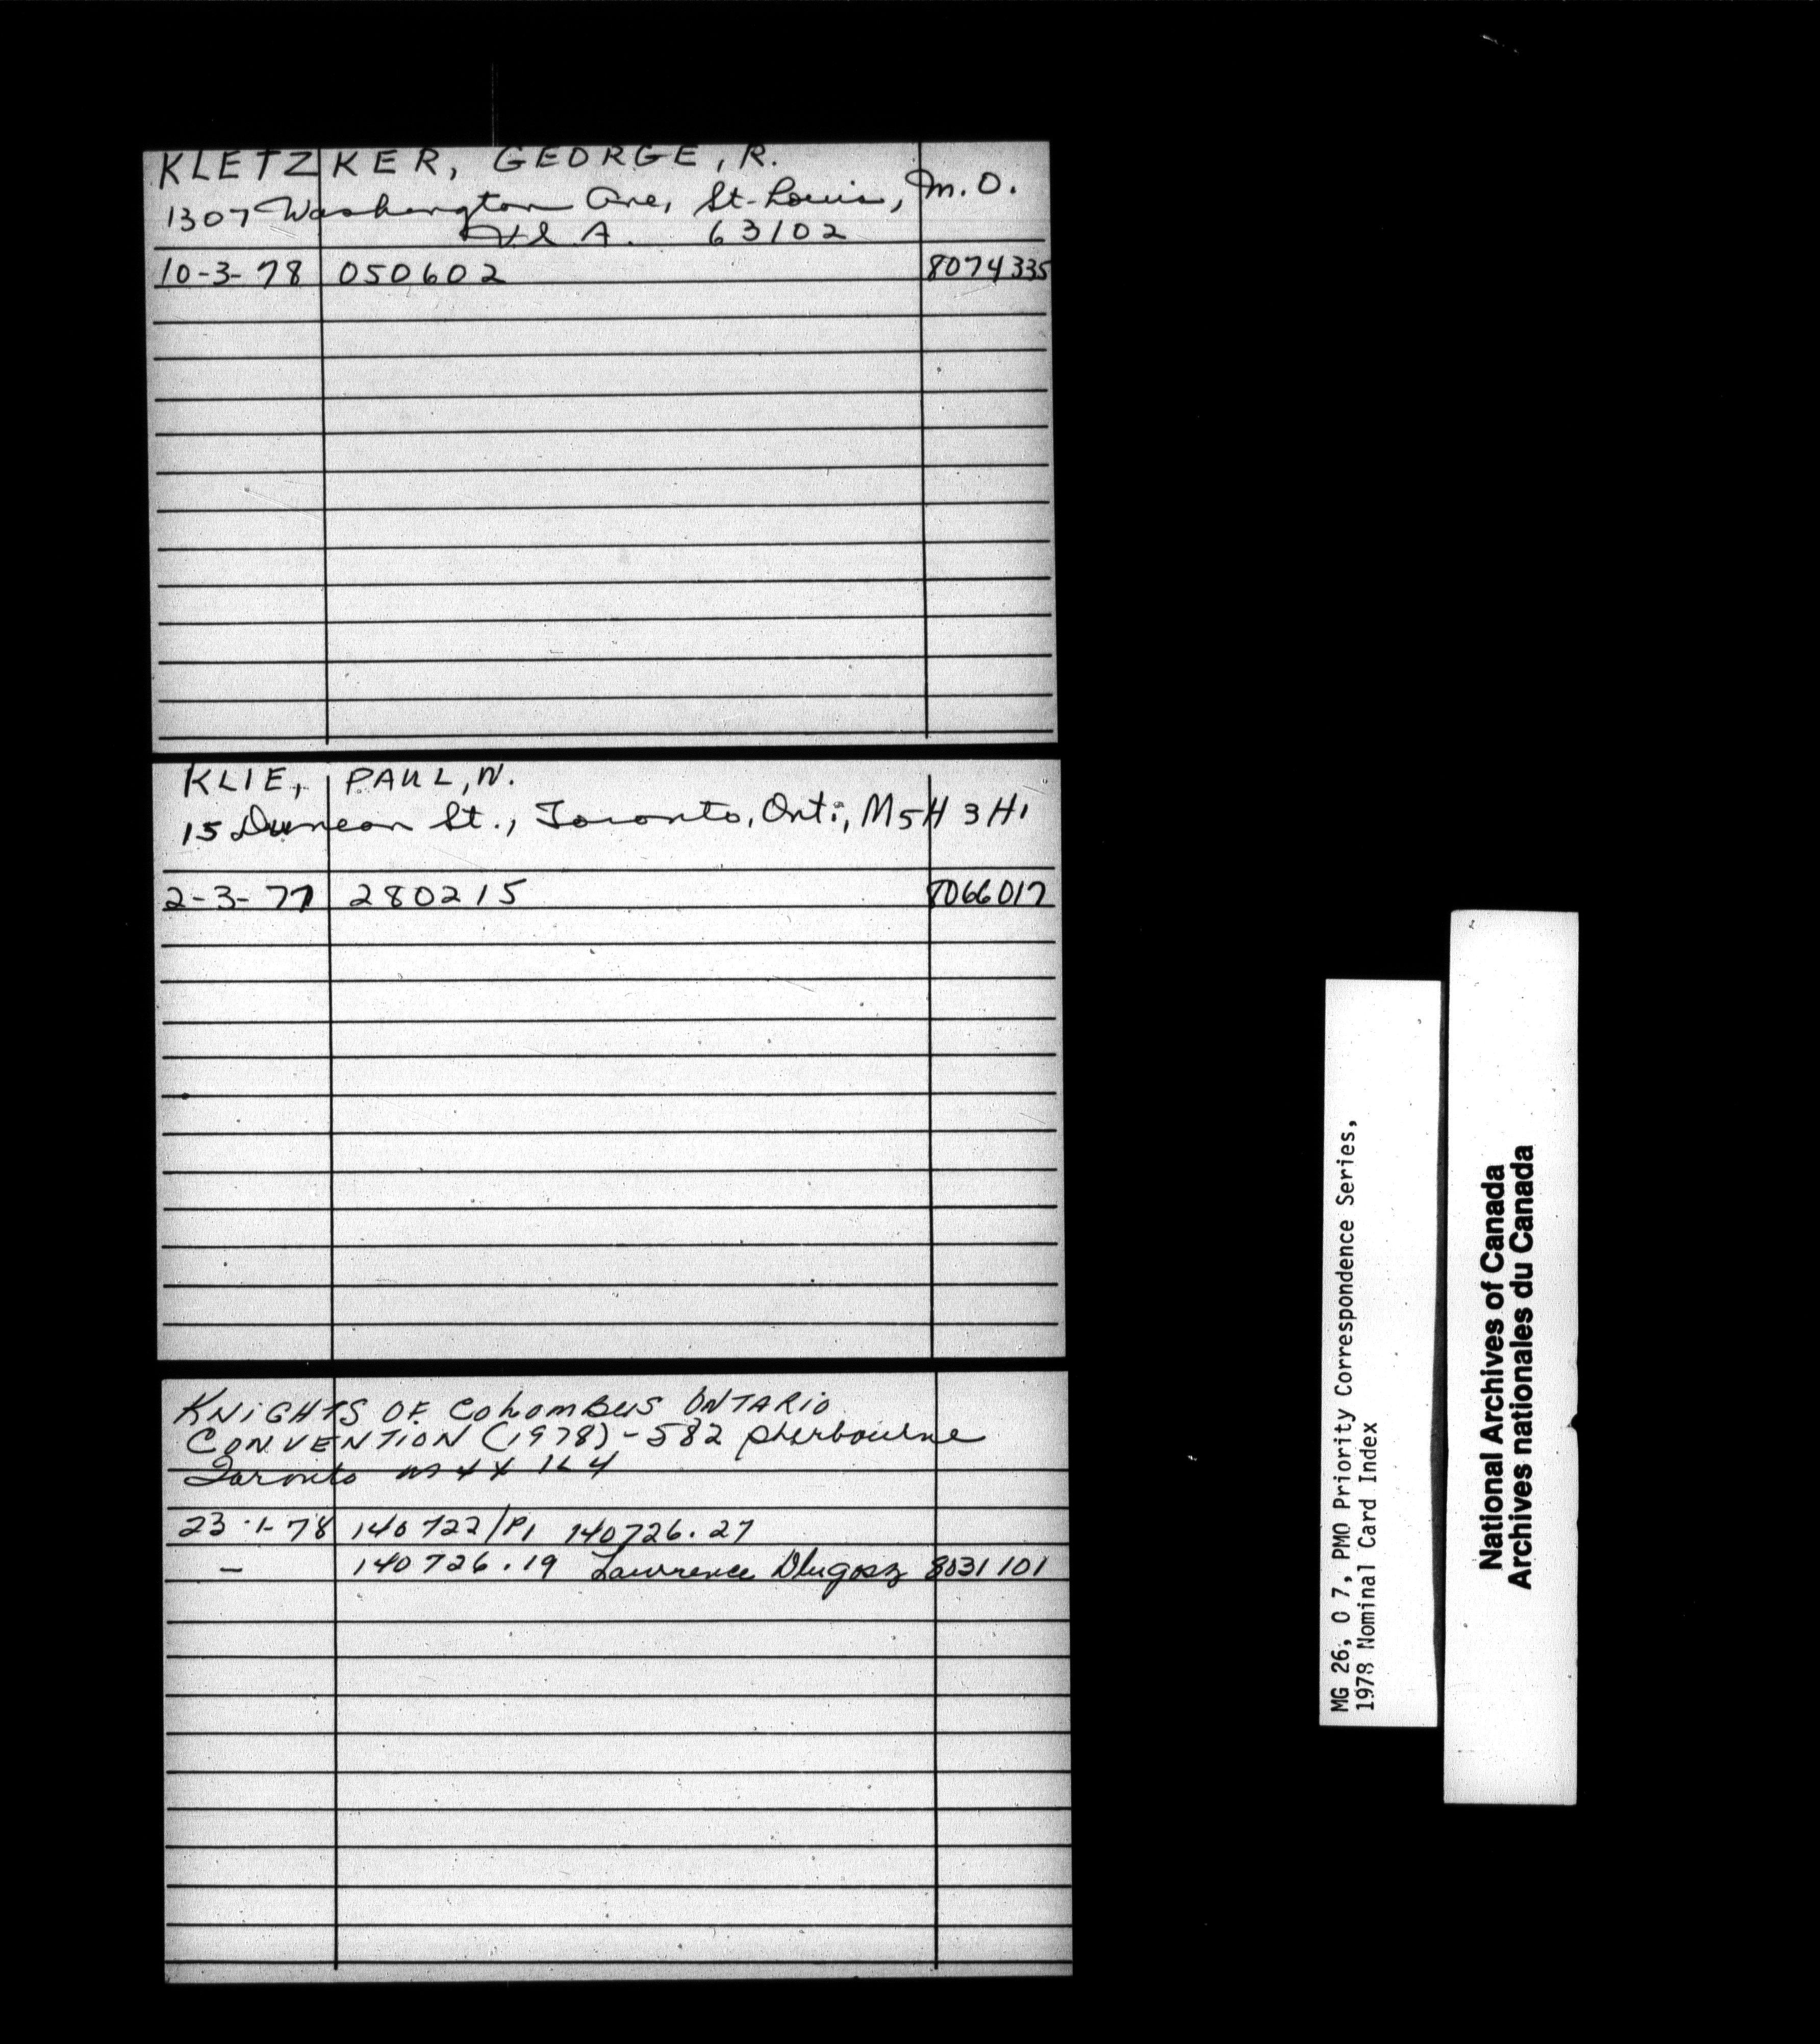 KLETZKER, GEORGE, R.
1307 Washington Ave, St-Louis, M.O.
U.S.A. 63102
10-3-78 050602 8074335
KLIE, PAUL, N.
15 Duncan St., Toronto, Ont., M5H 3H1
2-3-77 280215 8066017
KNIGHTS OF COLOMBUS ONTARIO
CONVENTION (1978) - 582 Sherbourne
Toronto M4X 1L4
23-1-78 140722/P1 140726.27
— 140726.19 Lawrence Dlugosz 8031101
MG 26, O 7, PMO Priority Correspondence Series,
1978 Nominal Card Index
National Archives of Canada
Archives nationales du Canada